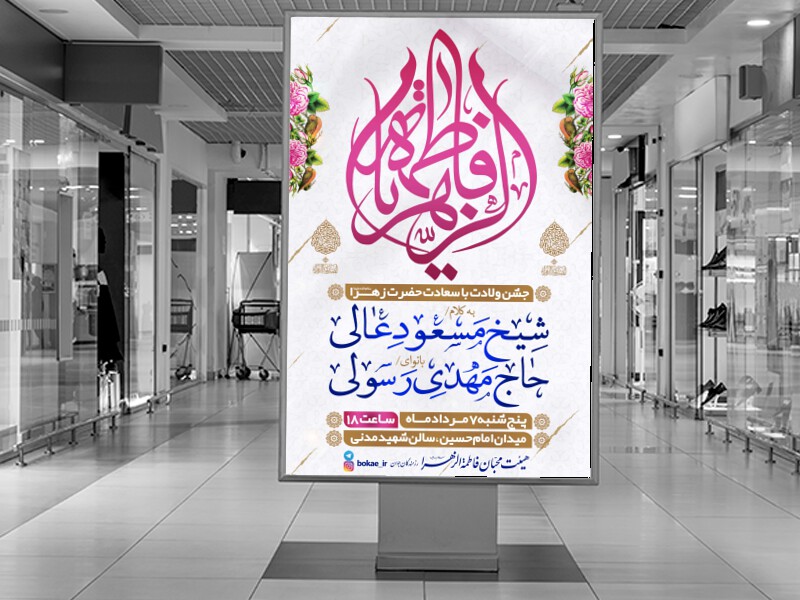 فاطمة الزهراء
جشن ولادت با سعادت حضرت زهرا
به کلام/
شیخ مسعود عالی
بانوای/
حاج مهدی رسولی
پنج شنبه ۷ مرداد ماه ساعت ۱۸
میدان امام حسین، سالن شهید مدنی
هیئت محبان فاطمة الزهرا
bokae_ir